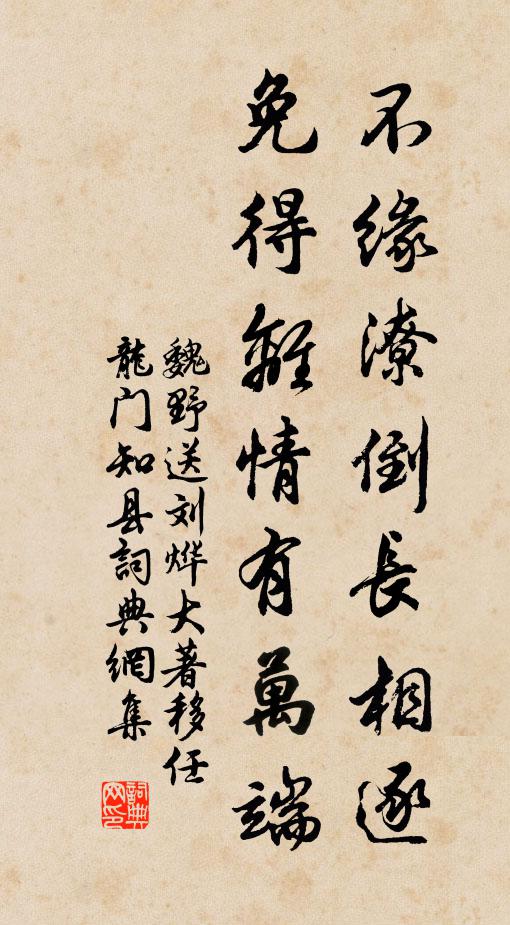 不缘潦倒長相逐
免得離情有萬端
魏野送刘烨大著移任
龍门知县詞典網集
詞典网印